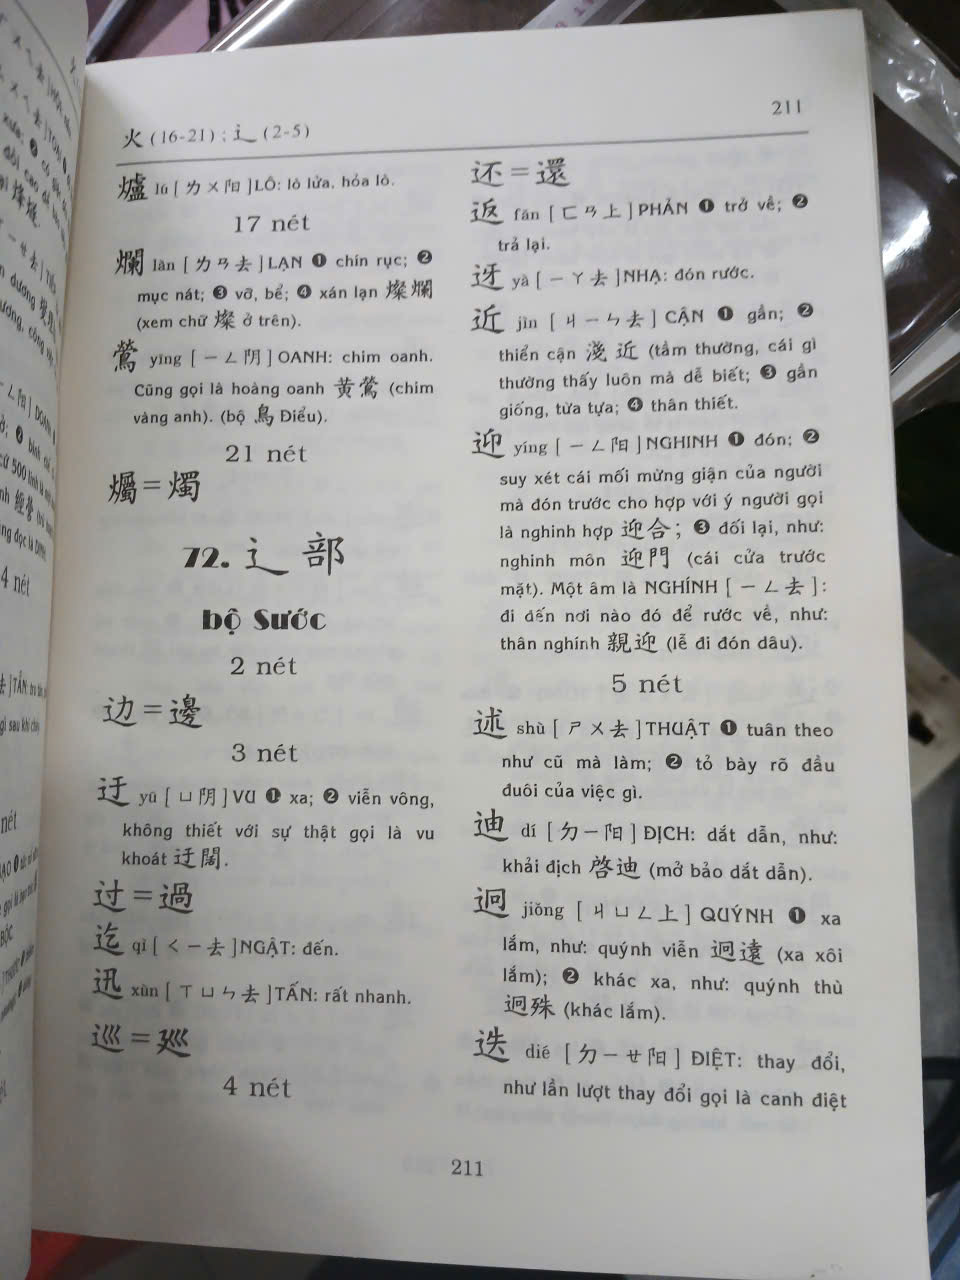 211
火 (16-21) : 辶 (2-5)
爐 lú [ ㄌㄨ阳 ] LÔ: lò lửa, hỏa lò.
17 nét
爛 làn [ ㄌㄢ去 ] LẠN ❶ chín rục; ❷
mục nát; ❸ vỡ, bể; ❹ xán lạn 燦爛
(xem chữ 燦 ở trên).
鶯 yīng [ ㄧㄥ阴 ] OANH: chim oanh.
Cũng gọi là hoàng oanh 黄鶯 (chim
vàng anh). (bộ 鳥 Điểu).
21 nét
爥=燭
72. 辶 部
bộ Sước
2 nét
边=邊
3 nét
迂 yū [ ㄩ阴 ] VU ❶ xa; ❷ viễn vông,
không thiết với sự thật gọi là vu
khoát 迂闊.
过=過
迄 qì [ ㄑㄧ去 ] NGẬT: đến.
迅 xùn [ ㄒㄩㄣ去 ] TẤN: rất nhanh.
巡=廵
4 nét
还=還
返 fãn [ ㄈㄢ上 ] PHẢN ❶ trở về; ❷
trả lại.
迓 yà [ ㄧㄚ去 ] NHẠ: đón rước.
近 jìn [ ㄐㄧㄣ去 ] CẬN ❶ gần; ❷
thiển cận 淺近 (tầm thường, cái gì
thường thấy luôn mà dễ biết; ❸ gần
giống, từa tựa; ❹ thân thiết.
迎 yíng [ ㄧㄥ阳 ] NGHINH ❶ đón; ❷
suy xét cái mối mừng giận của người
mà đón trước cho hợp với ý người gọi
là nghinh hợp 迎合; ❸ đối lại, như:
nghinh môn 迎門 (cái cửa trước
mặt). Một âm là NGHÍNH [ ㄧㄥ去 ]:
đi đến nơi nào đó để rước về, như:
thân nghính 親迎 (lễ đi đón dâu).
5 nét
述 shù [ ㄕㄨ去 ] THUẬT ❶ tuân theo
như cũ mà làm; ❷ tỏ bày rõ đầu
đuôi của việc gì.
迪 dí [ ㄉㄧ阳 ] ĐỊCH: dắt dẫn, như:
khải địch 啓迪 (mở bảo dắt dẫn).
迥 jiǒng [ ㄐㄩㄥ上 ] QUÝNH ❶ xa
lắm, như: quýnh viễn 迥遠 (xa xôi
lắm); ❷ khác xa, như: quýnh thù
迥殊 (khác lắm).
迭 dié [ ㄉㄧㄝ阳 ] ĐIỆT: thay đổi,
như lần lượt thay đổi gọi là canh điệt
211